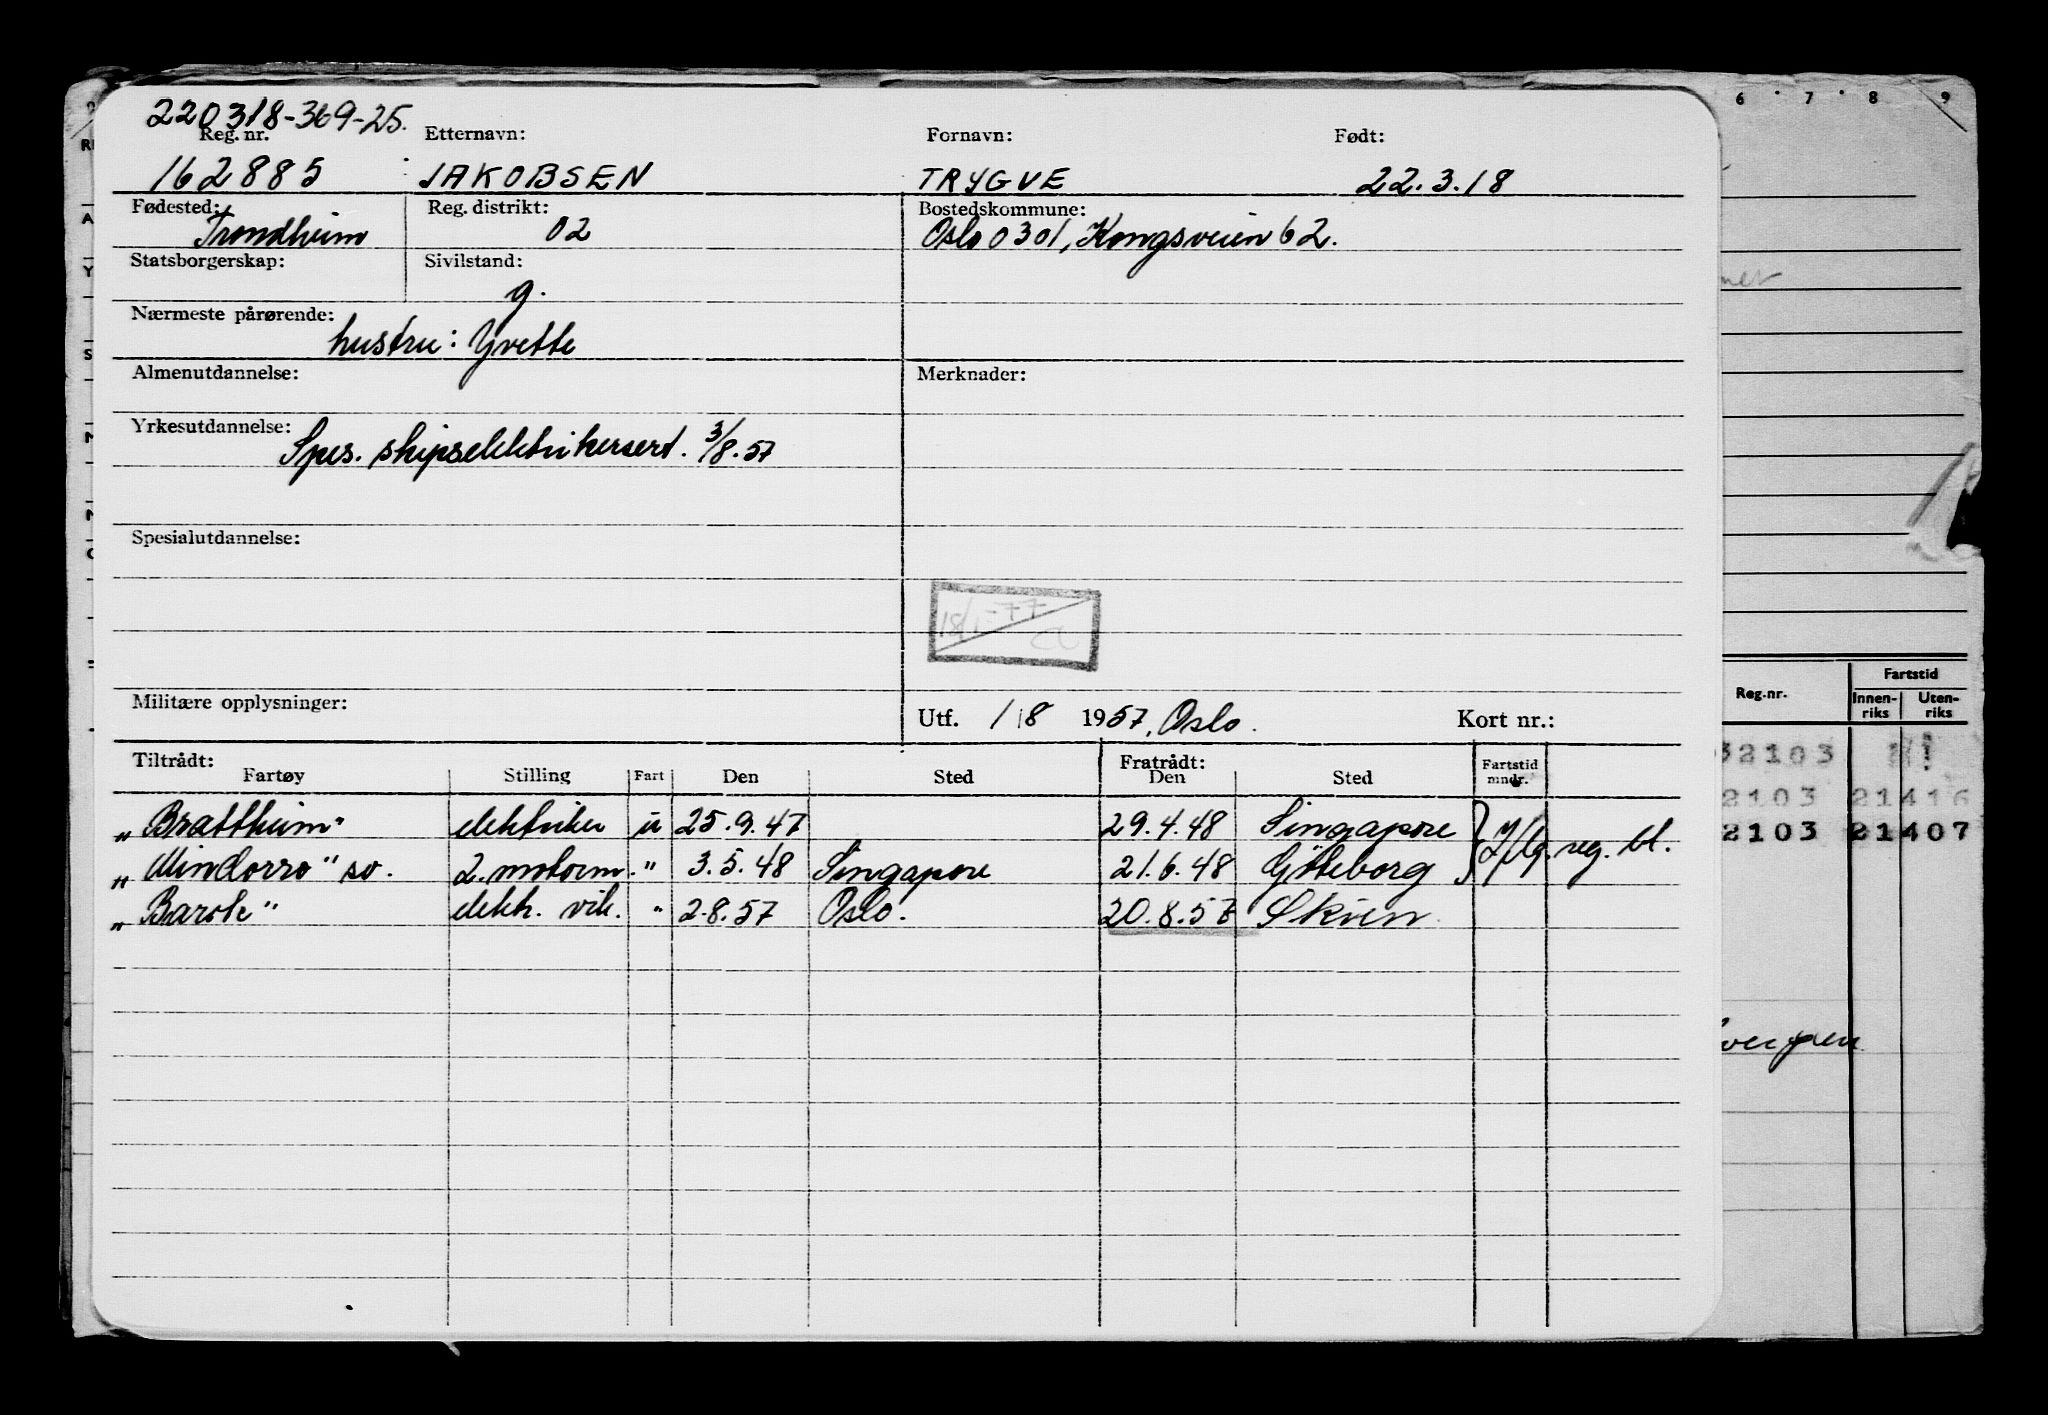 220318-369-25.
Reg. nr. Etternavn: Fornavn: Født:
162885 JAKOBSEN TRYGVE 22.3.18
Fødested: Reg. distrikt: Bostedskommune:
Trondheim 02 Oslo 0301, Kongsveien 62.
Statsborgerskap: Sivilstand:
g.
Nærmeste pårørende:
hustru: Yvette
Almenutdannelse: Merknader:
Yrkesutdannelse:
Spes. skipselektrikersert. 3/8.57
Spesialutdannelse:
18/1-77
Militære opplysninger:
Utf. 1/8 1957, Oslo. Kort nr.:
Tiltrådt: Fratrådt: Fartstid
Fartøy Stilling Fart Den Sted Den Sted mndr.
"Brattheim" elektriker u 25.9.47 29.4.48 Singapore
"Mindorro" so. 2. motorm. " 3.5.48 Singapore 21.6.48 Göteborg
reg. bl.
"Barok" elektr. vik. " 2.8.57 Oslo. 20.8.57 Skien
6 7 8 9
A
Y
S
M
Fartstid
Reg.nr. Innen-riks Uten-riks
32103
2103 21416
2103 21407